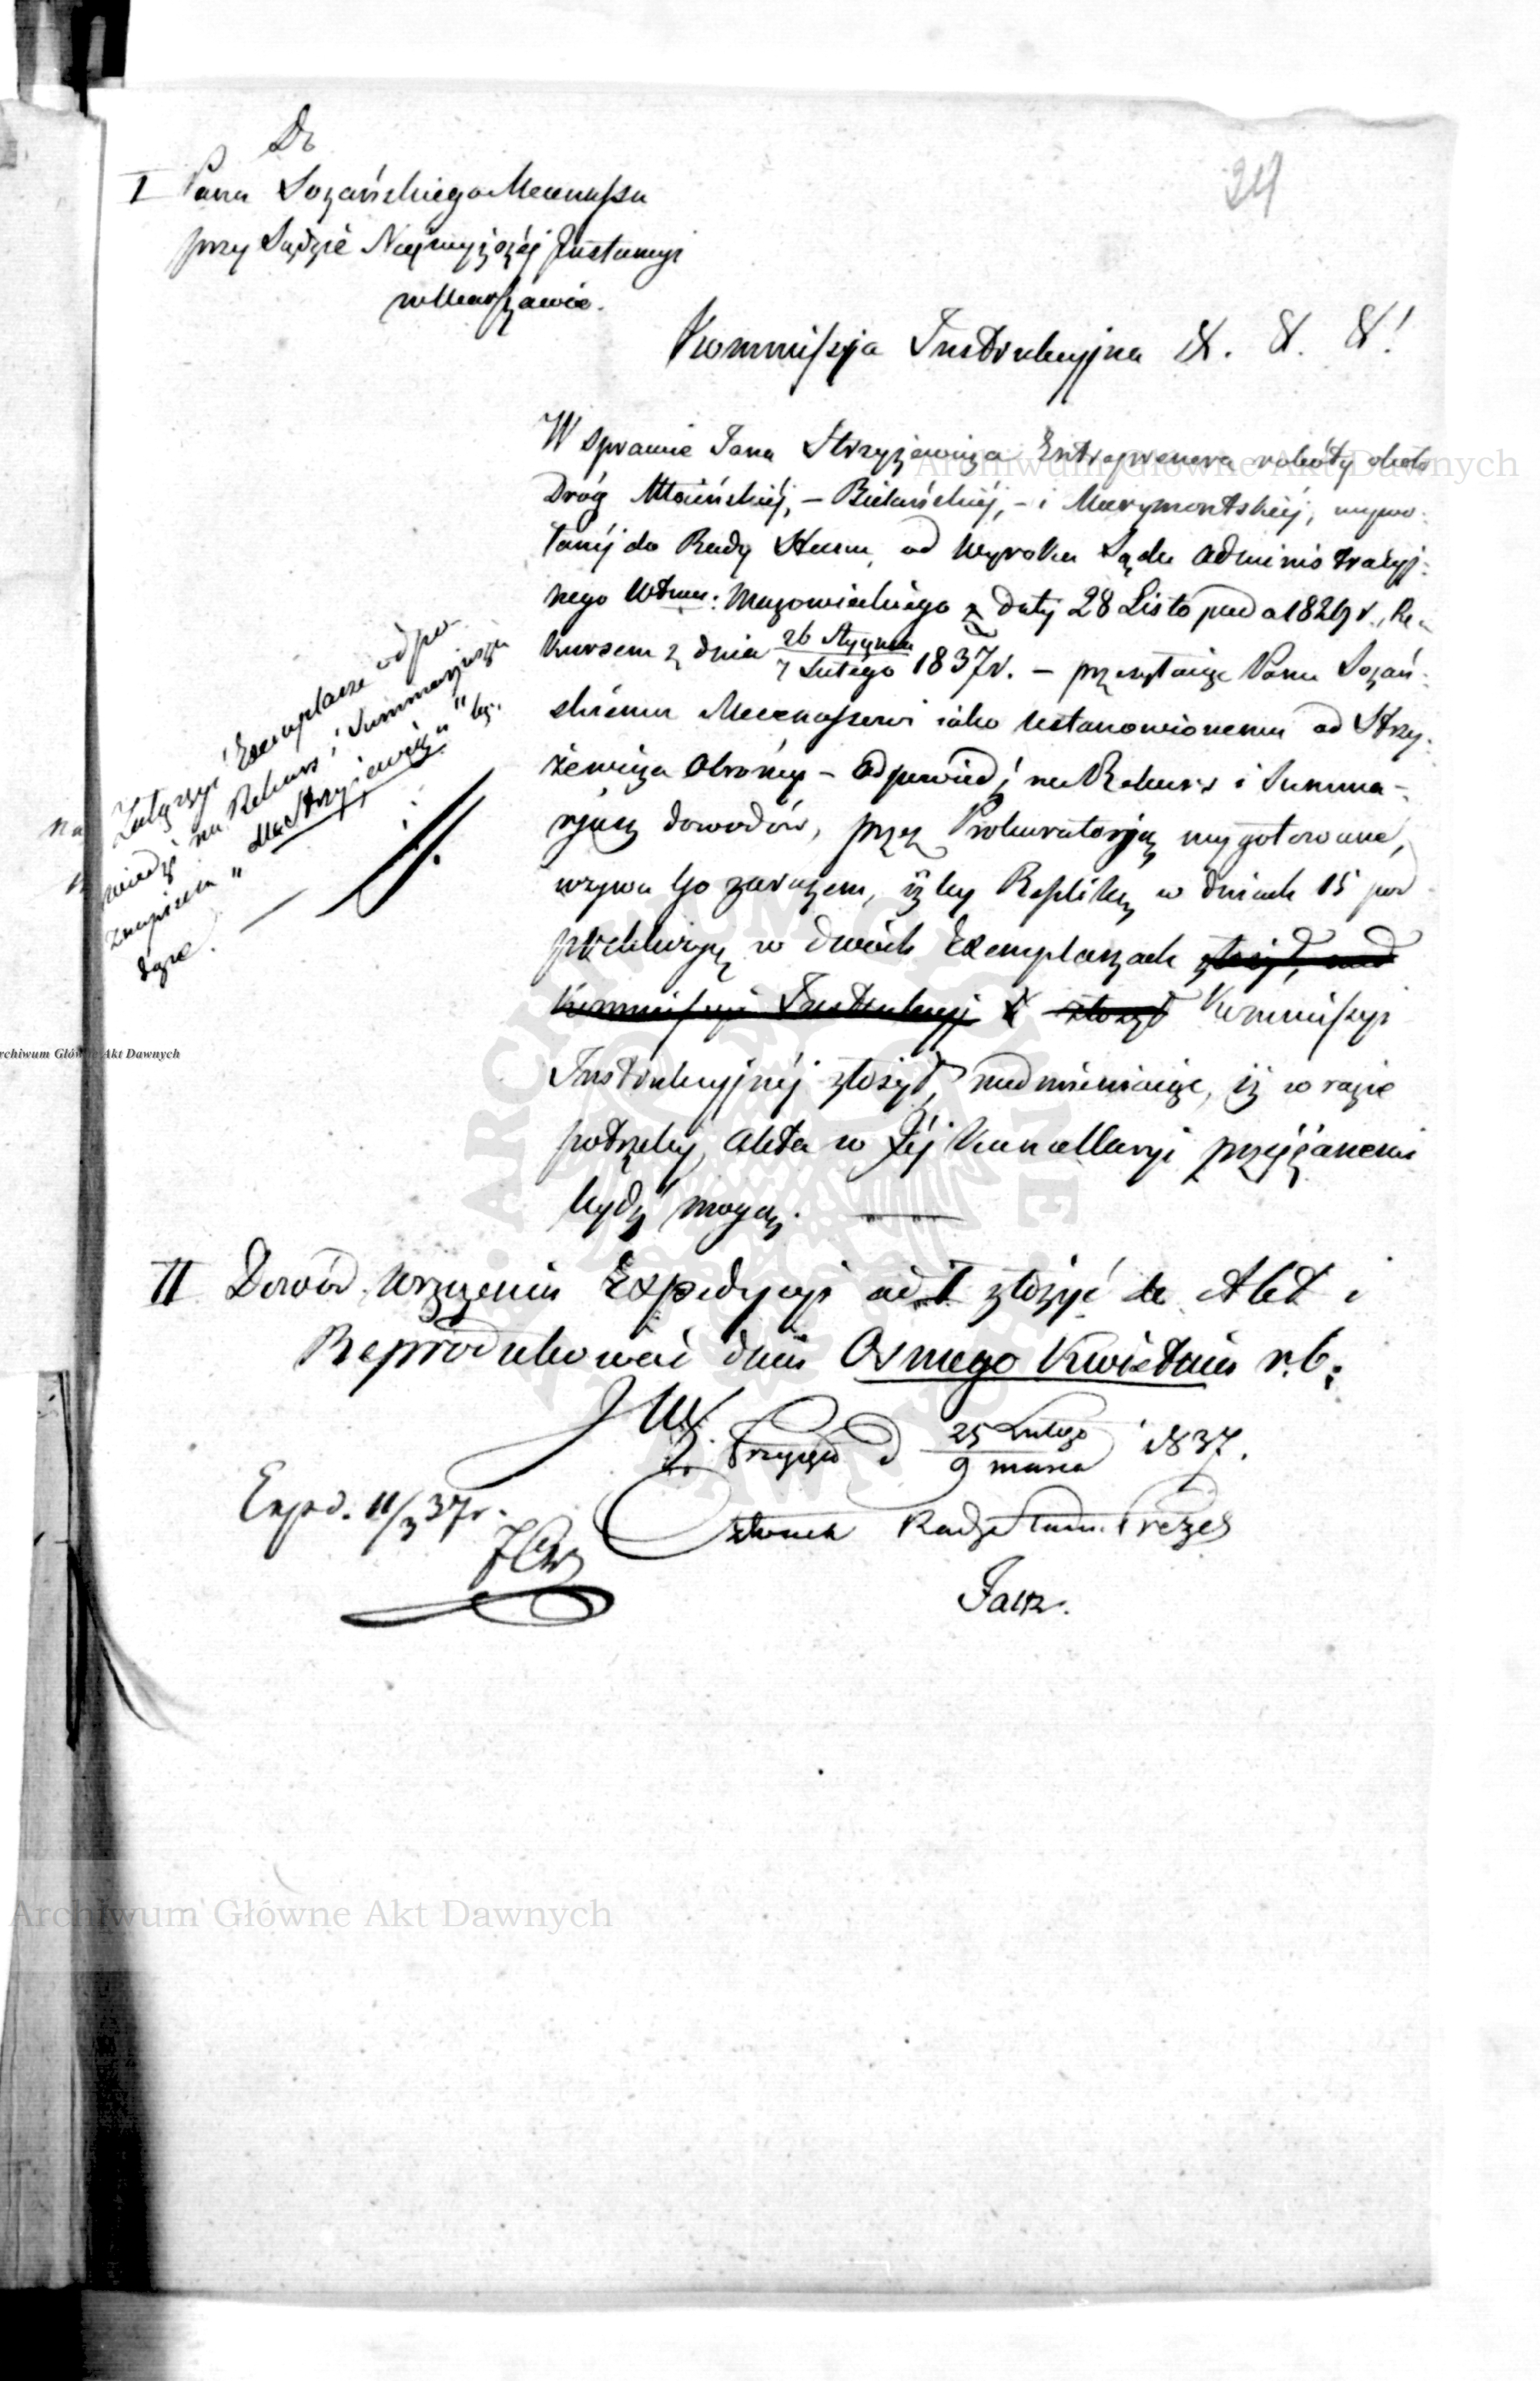 Do
I Pana Łozańskiego Mecenassa
przy Sądzie Najwyższéj Instancyi
w Warszawie.
24
Kommissyja Instrukcyjna &. &. &!
W sprawie Jana Strzyżewicza Entreprenera roboty około
Dróg Młocińskiéj, – Bielańskiéj, – i Marymontskiéj, wywo-
łanéj do Rady Stanu, od Wyroku Sądu Administracyj-
nego Wdztwa: Mazowieckiego z daty 28 Listopada 1829 r., Re-
kursem z dnia 26 Stycznia / 7 Lutego 1837 r. – przesyłaiąc Panu Łozań-
skiemu Mecenassowi iako ustanowionemu od Strzy-
żewicza Obrońcy – Odpowiedź na Rekurs i Summa-
ryusz dowodów, przez Prokuratoryją wygotowane,
wzywa Go zarazem, iżby Replikę w dniach 15 pod
prekluzyą w dwóch Exemplarzach złożył, nad
Kommissyi Instrukcyj & złożył Kommissyi
Instrukcyjnéj złożył, nadmieniaiąc, iż w razie
potrzeby, Akta w Jéj Kancellaryi przejżanemi
bydź mogą.
Załączyć Exemplarze odpo-
wiedzi na Rekurs i Summaryusza
znapisem „dla Strzyżewicza"
II Dowód wręczenia Expedycyi ad I złożyć do Akt i
Reprodukować dnia Osmego Kwietnia r. b.
d 25 Lutego / 9 marca 1837.
Exped. 11/3 37 r.
Członek Rady Stanu Prezes